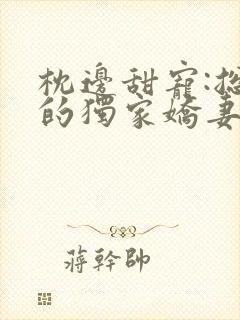 枕邊甜寵:
的獨家嬌妻
蔣幹帥